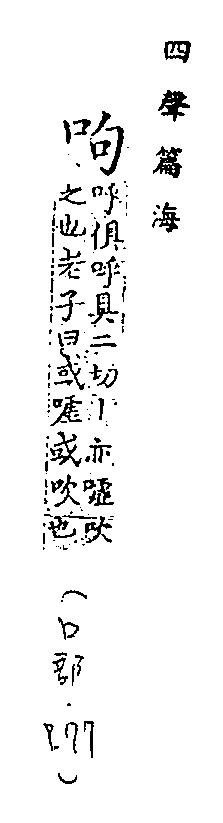 四聲篇海
呴
呼俱呼具二切丨亦噓吹
之也老子曰或嘘或吹也
(口部.P.77)